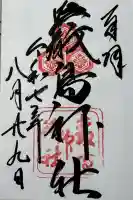 嚴島神社
令和七年
八月廿九日